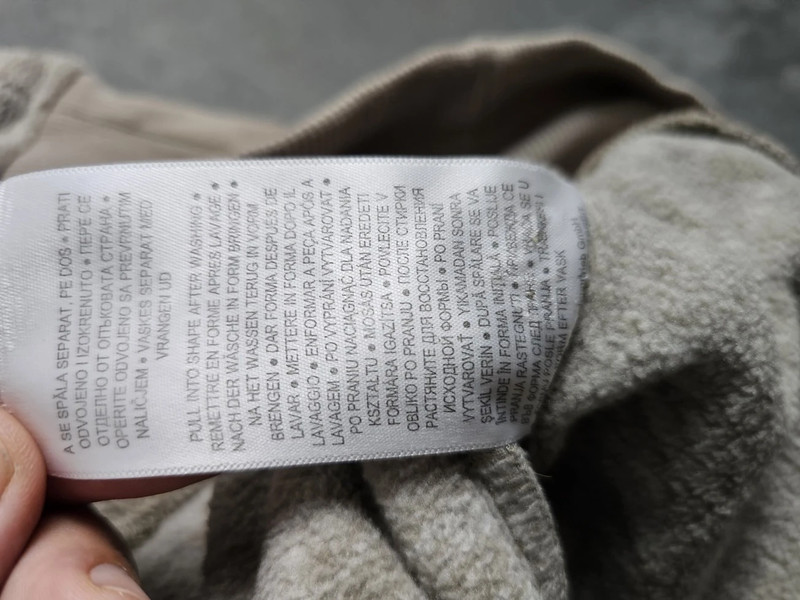 A SE SPĂLA SEPARAT, PE DOS • PRATI
ODVOJENO I IZOKRENUTO • ПЕРЕ СЕ
ОТДЕЛНО ОТ ОПЪКОВАТА СТРАНА •
OPERITE ODVOJENO SA PREVRNUTIM
NALIČJEM • VASKES SEPARAT MED
VRANGEN UD
PULL INTO SHAPE AFTER WASHING •
REMETTRE EN FORME APRÈS LAVAGE •
NACH DER WÄSCHE IN FORM BRINGEN •
NA HET WASSEN TERUG IN VORM
BRENGEN • DAR FORMA DESPUÉS DE
LAVAR • METTERE IN FORMA DOPO IL
LAVAGGIO • ENFORMAR A PEÇA APÓS A
LAVAGEM • PO VYPRÁNÍ VYTVAROVAT •
PO PRANIU NACIĄGNĄĆ DLA NADANIA
KSZTAŁTU • MOSÁS UTÁN EREDETI
FORMÁRA IGAZÍTSA • POVLECITE V
OBLIKO PO PRANJU • ПОСЛЕ СТИРКИ
РАСТЯНИТЕ ДЛЯ ВОССТАНОВЛЕНИЯ
ИСХОДНОЙ ФОРМЫ • PO PRANÍ
VYTVAROVAŤ • YIKAMADAN SONRA
ŞEKİL VERİN • DUPĂ SPĂLARE SE VA
ÎNTINDE ÎN FORMA INIŢIALĂ • POSLIJE
PRANJA RASTEGNUTI •
ФОРМА СЛЕД ПРАНЕ • SE U
POSLE PRANJA •
FORM EFTER VASK
GmbH